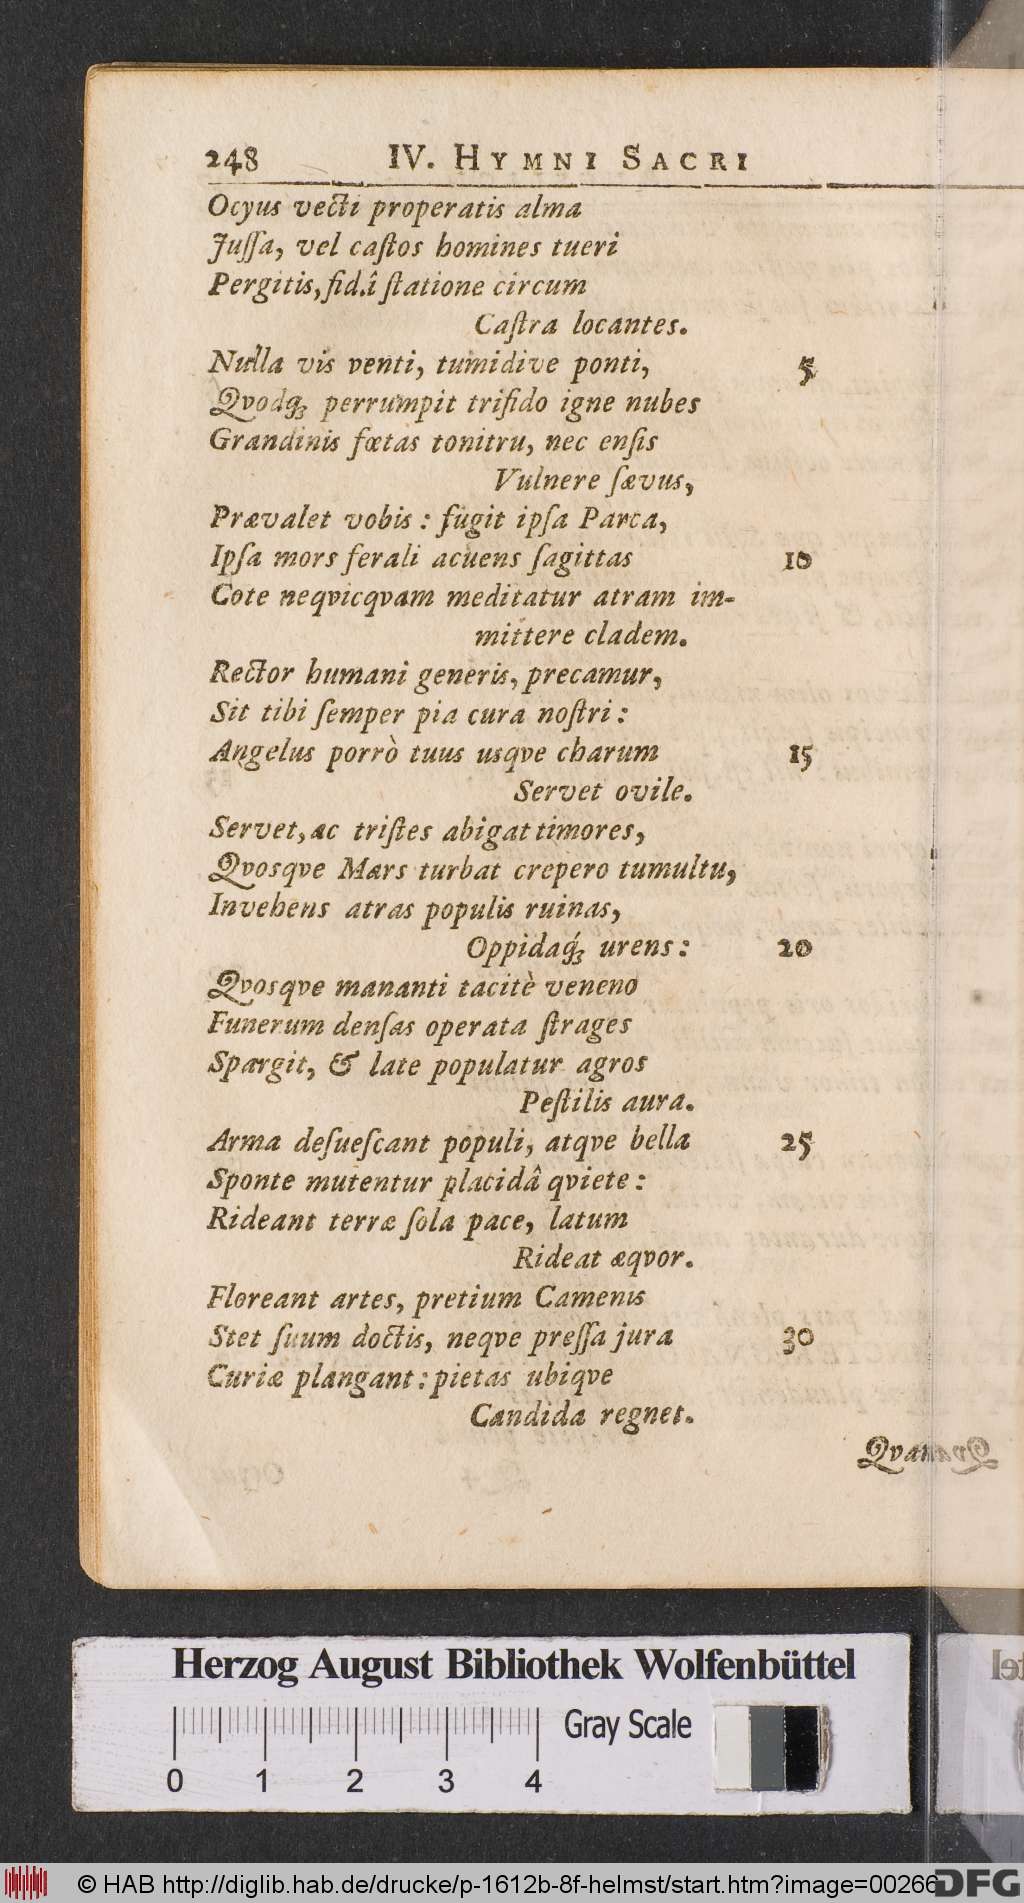 248 IV. HYMNI SACRI
Ocyus vecti properatis alma
Juſſa, vel caſtos homines tueri
Pergitis, fidâ ſtatione circum
Caſtra locantes.
Nulla vis venti, tumidive ponti, 5
Qvodq́ꝫ perrumpit trifido igne nubes
Grandinis fœtas tonitru, nec enſis
Vulnere ſævus,
Prævalet vobis : fugit ipſa Parca,
Ipſa mors ferali acuens ſagittas 10
Cote neqvicqvam meditatur atram im-
mittere cladem.
Rector humani generis, precamur,
Sit tibi ſemper pia cura noſtri :
Angelus porrò tuus usqve charum 15
Servet ovile.
Servet, ac triſtes abigat timores,
Qvosqve Mars turbat crepero tumultu,
Invehens atras populis ruinas,
Oppidaq́ꝫ urens : 20
Qvosqve mananti tacitè veneno
Funerum denſas operata ſtrages
Spargit, & late populatur agros
Peſtilis aura.
Arma deſueſcant populi, atqve bella 25
Sponte mutentur placidâ qviete :
Rideant terræ ſola pace, latum
Rideat æqvor.
Floreant artes, pretium Camenis
Stet ſuum doctis, neqve preſſa jura 30
Curiæ plangant : pietas ubiqve
Candida regnet.
Herzog August Bibliothek Wolfenbüttel
Gray Scale
0 1 2 3 4
© HAB http://diglib.hab.de/drucke/p-1612b-8f-helmst/start.htm?image=00266
DFG